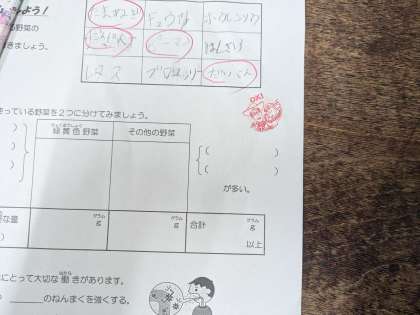 よう!
野菜の
きましょう。
たまねぎ キュウリ ホウレンソウ
にんじん ピーマン はくさい
レタス ブロッコリー だいこん
OK!
っている野菜を2つに分けてみましょう。
りょくおうしょく
緑黄色野菜 その他の野菜
) ( )
) ( )
) が多い。
グラム グラム グラム
な量 g g 合計 g
) 以上
はたら
にとって大切な働きがあります。
のねんまくを強くする。